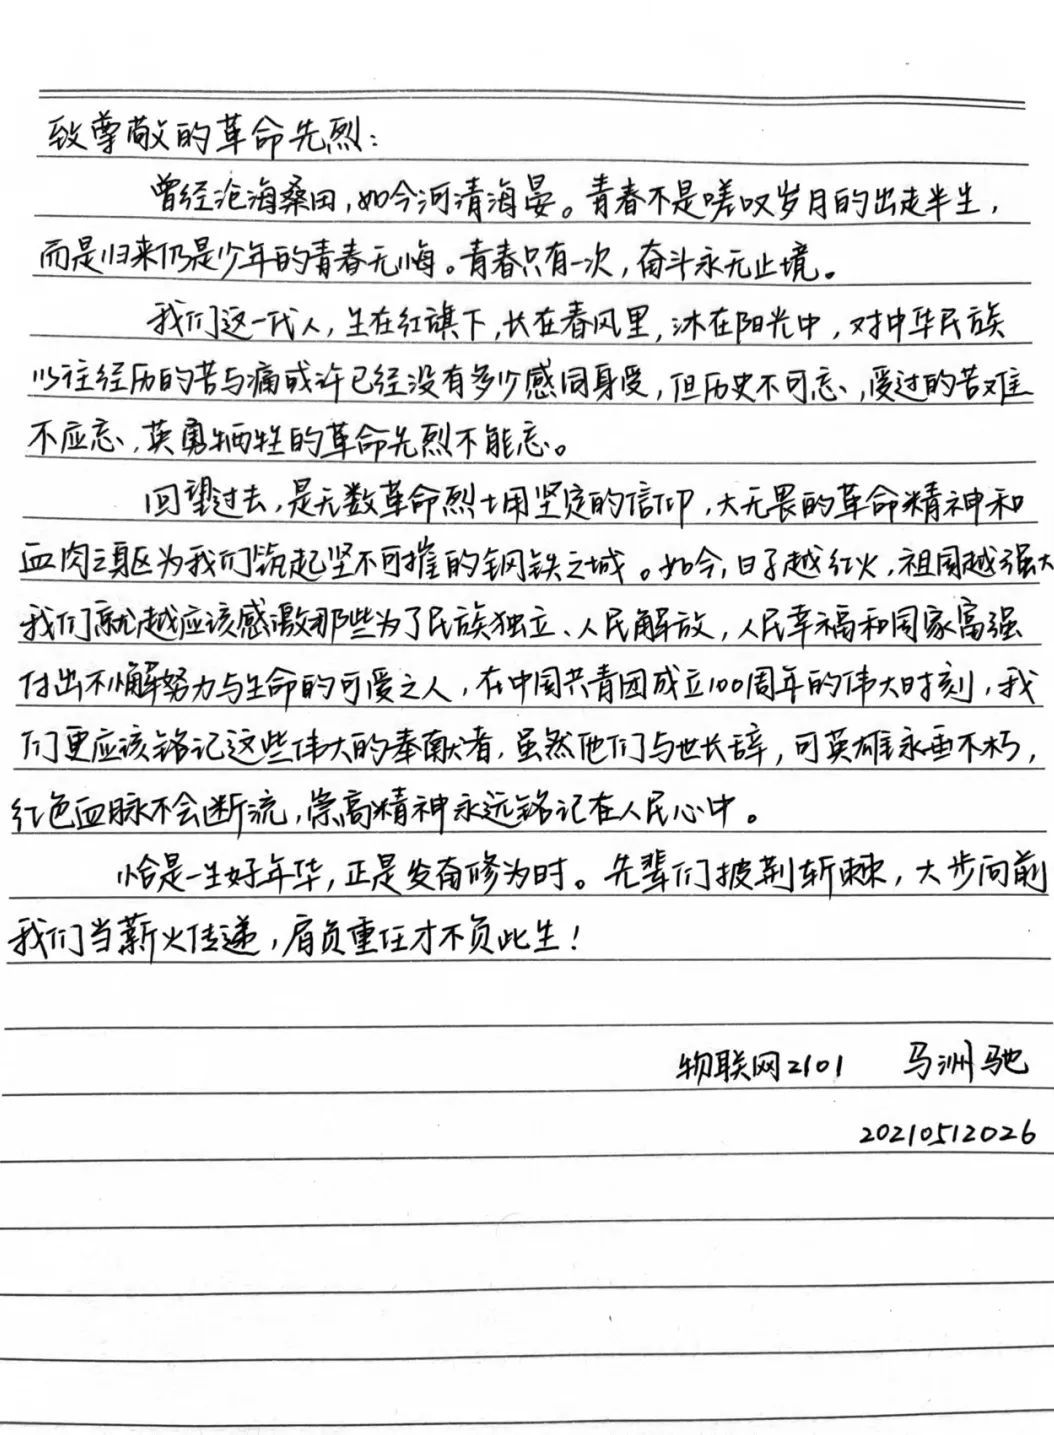 致尊敬的革命先烈：
曾经沧海桑田，如今河清海晏。青春不是嗟叹岁月的出走半生，
而是归来仍是少年的青春无悔。青春只有一次，奋斗永无止境。
我们这一代人，生在红旗下，长在春风里，沐在阳光中，对中华民族
以往经历的苦与痛或许已经没有多少感同身受，但历史不可忘，受过的苦难
不应忘，英勇牺牲的革命先烈不能忘。
回望过去，是无数革命烈士用坚定的信仰，大无畏的革命精神和
血肉之躯为我们筑起坚不可摧的钢铁之城。如今，日子越红火，祖国越强大
我们就越应该感激那些为了民族独立、人民解放，人民幸福和国家富强
付出不懈努力与生命的可爱之人，在中国共青团成立100周年的伟大时刻，我
们更应该铭记这些伟大的奉献者，虽然他们与世长辞，可英雄永垂不朽，
红色血脉不会断流，崇高精神永远铭记在人民心中。
恰是一生好年华，正是发奋修为时。先辈们披荆斩棘，大步向前
我们当薪火传递，肩负重任才不负此生！
物联网2101 马洲驰
20210512026